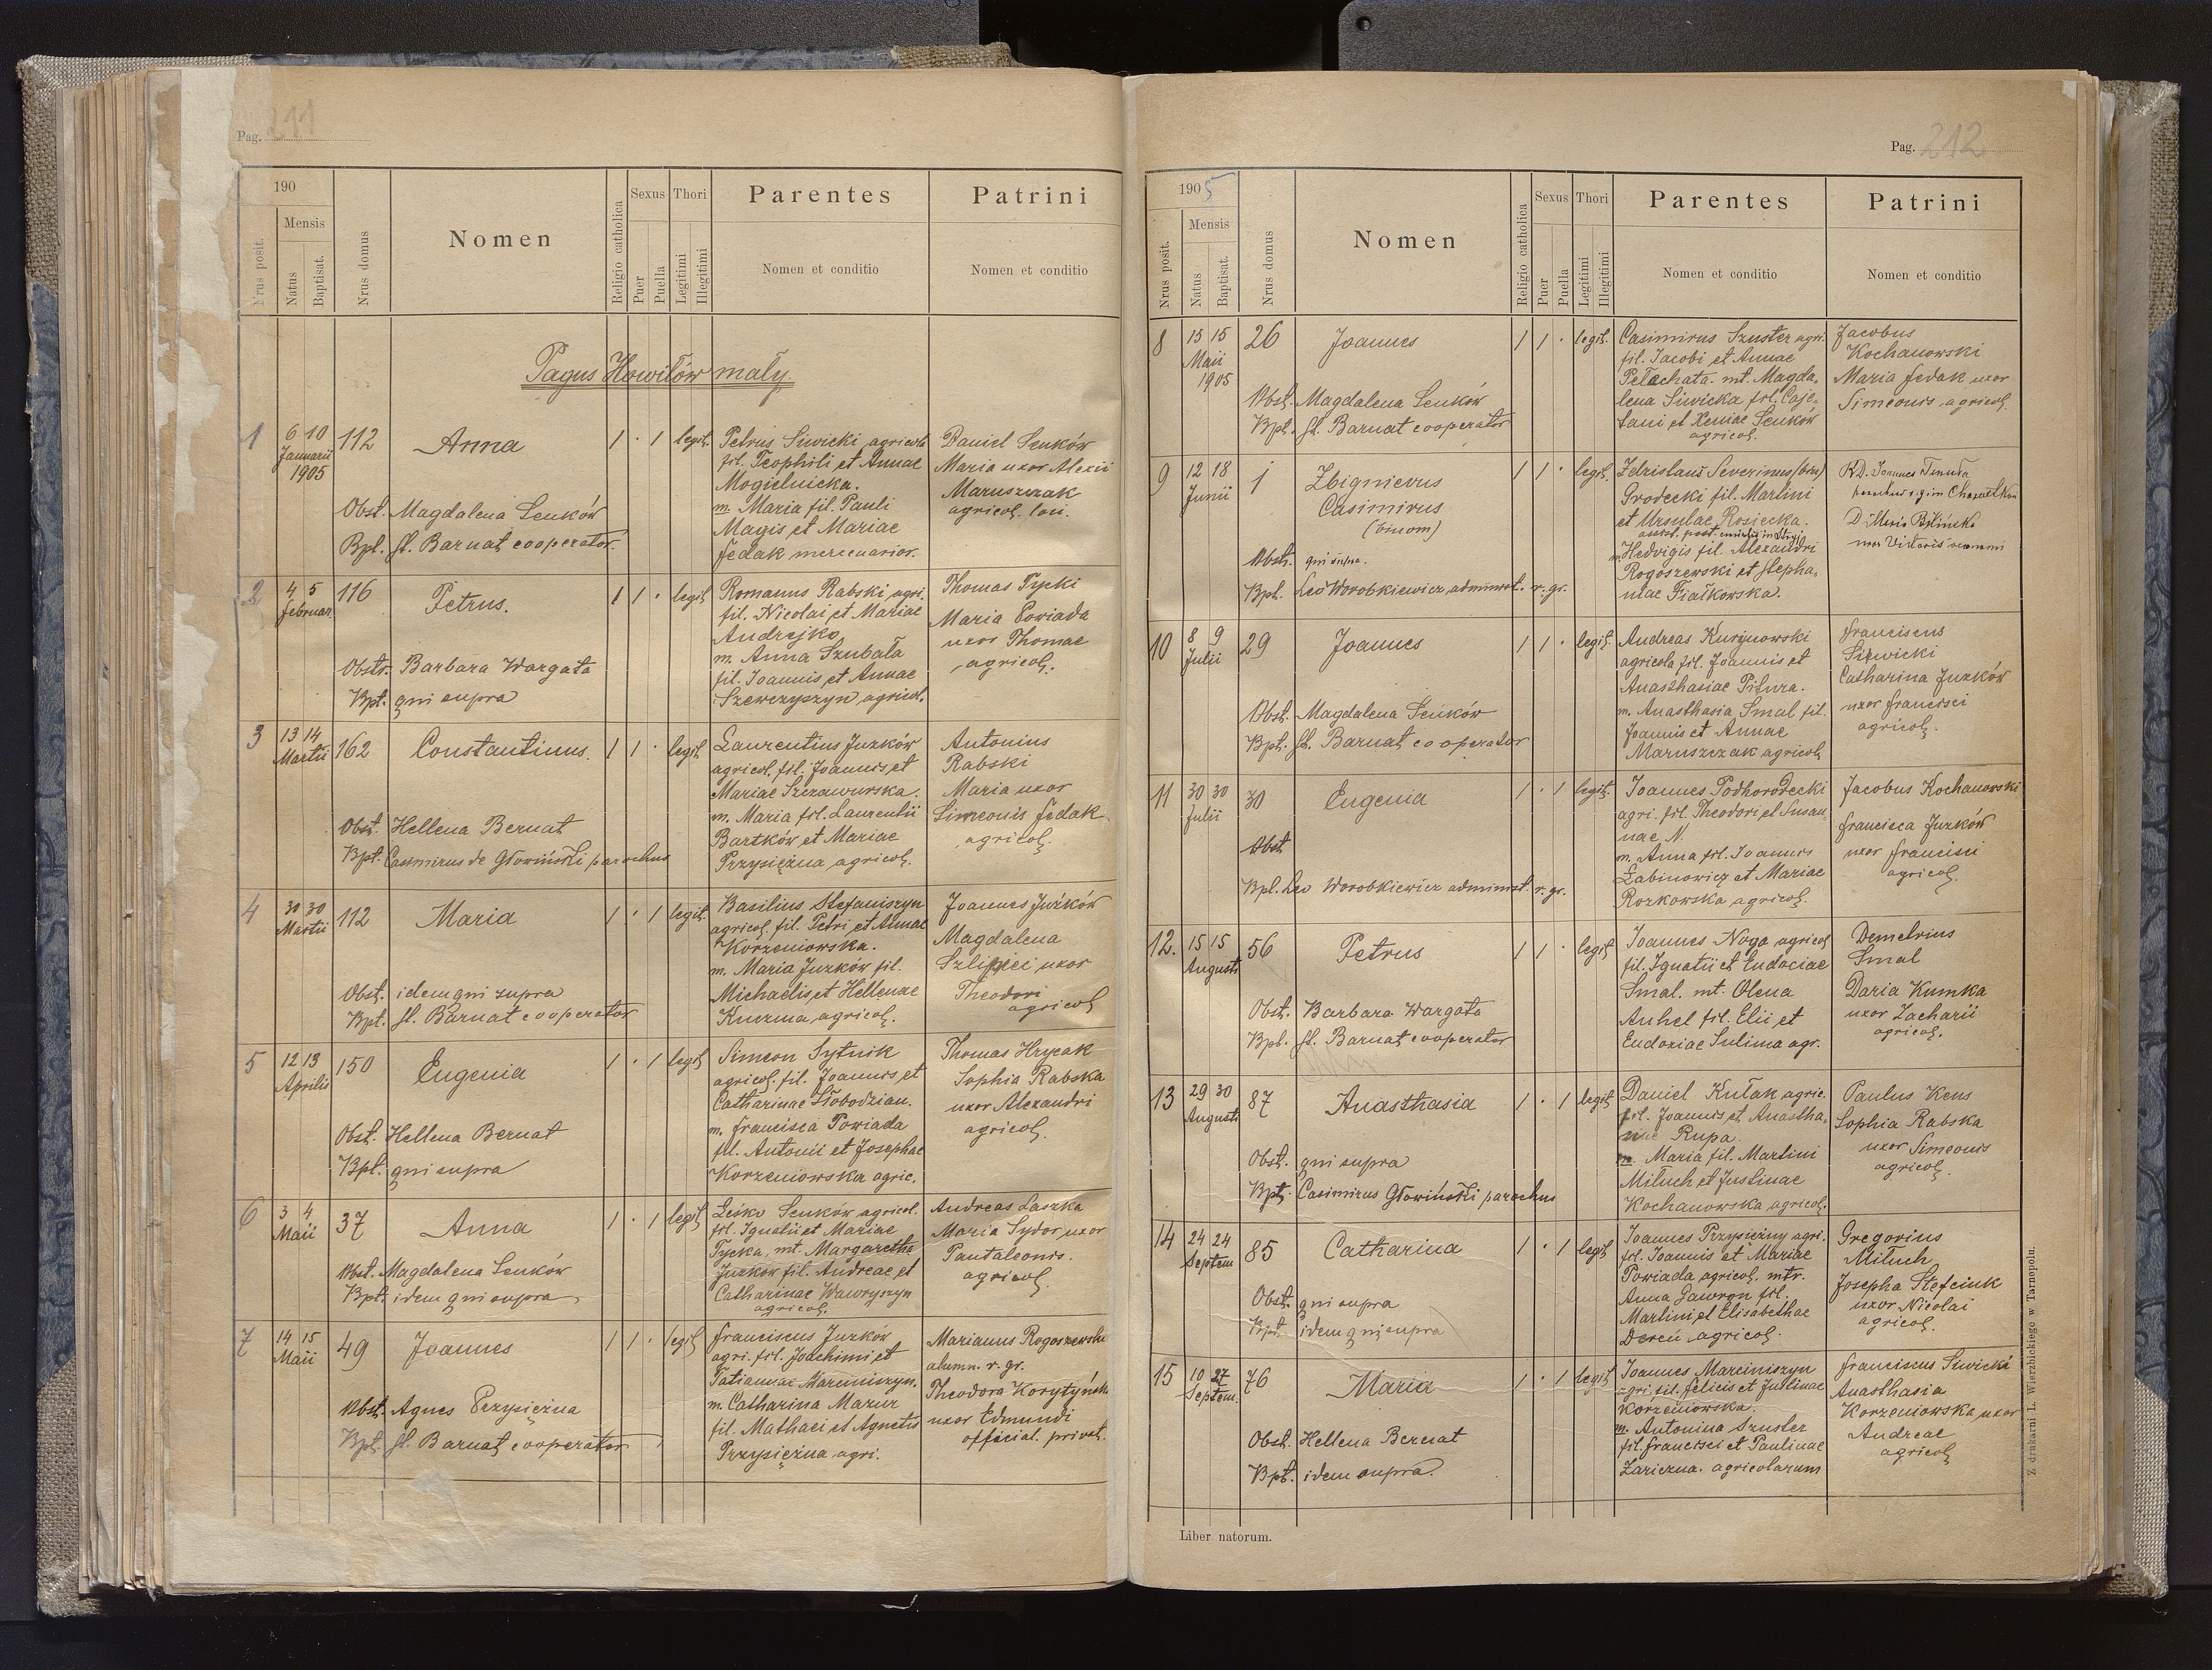 Pag. 211
190
Nrus posit.
Mensis
Natus
Baptisat.
Nrus domus
Nomen
Religio catholica
Sexus
Puer
Puella
Thori
Legitimi
Illegitimi
Parentes
Nomen et conditio
Patrini
Nomen et conditio
Pagus Howilów mały
1
6 10
Januarii
1905
112
Anna
1 · 1 legit.
Obst. Magdalena Senków
Bpt. St. Barnat cooperator.
Petrus Siwicki agricola
fil. Teophili et Annae
Mogielnicka.
m. Maria fil. Pauli
Magis et Mariae
Fedak mercenarior.
Daniel Senków
Maria uxor Alexii
Maruszczak
agricol. loci.
2
4 5
Februar.
116
Petrus.
1 1 · legit
Obstr. Barbara Wargata
Bpt. qui supra
Romanus Rabski agri.
fil. Nicolai et Mariae
Andrejko
m. Anna Szubala
fil. Joannis et Annae
Szewczyszyn agricol.
Thomas Tycki
Maria Powiada
uxor Thomae
agricol.
3
13 14
Martii
162
Constantinus.
1 1 · legit
Obst. Hellena Bernat
Bpt. Casimirus de Głowiński parochus
Laurentius Juzków
agricol. fil. Joannis et
Mariae Szczawurska.
m. Maria fil. Laurentii
Bartków et Mariae
Przysiężna agricol.
Antonius
Rabski
Maria uxor
Simeonis Fedak
agricol.
4
30 30
Martii
112
Maria
1 · 1 legit.
Obst. idem qui supra
Bpt. St. Barnat cooperator
Basilius Stefaniszyn
agricol. fil. Petri et Annae
Korzeniowska.
m. Maria Juzków fil.
Michaelis et Hellenae
Kuczma agricol.
Joannes Juzków
Magdalena
uxor
Theodori
agricol
5
12 13
Aprilis
150
Eugenia
1 · 1 legit
Obst. Hellena Bernat
Bpt. qui supra
Simeon Sytnik
agricol. fil. Joannis et
Catharinae Słobodzian.
m. Francisca Powiada
fil. Antonii et Josephae
Korzeniowska agric.
Thomas Hrycak
Sophia Rabska
uxor Alexandri
agricol.
6
3 4
Maii
37
Anna
1 · 1 legit
Obst. Magdalena Senków
Bpt. idem qui supra
Leiko Senków agricol.
fil. Ignatii et Mariae
Tycka, mt. Margaretha
Juzków fil. Andreae et
Catharinae Wawryszyn
agricol.
Andreas Laszka
Maria Sydor uxor
Pantaleonis.
agricol.
7
14 15
Maii
49
Joannes
1 1 · legit
Obst. Agnes Przysiężna
Bpt. St. Barnat cooperator
Franciscus Juzków
agri. fil. Joachimi et
Tatiannae Marciniszyn.
m. Catharina Mazur
fil. Mathaei et Agnetis
Przysiężna agri.
Marianus Rogoszewski
alumn. r. gr.
Theodora Korytyńska
uxor Edmundi
official. privat.
Pag. 212
1905
Nrus posit.
Mensis
Natus
Baptisat.
Nrus domus
Nomen
Religio catholica
Sexus
Puer
Puella
Thori
Legitimi
Illegitimi
Parentes
Nomen et conditio
Patrini
Nomen et conditio
8
15 15
Maii
1905
26
Joannes
1 1 · legit.
Obst. Magdalena Senków
Bpt. St. Barnat cooperator
Casimirus Szuster agri.
fil. Jacobi et Annae
Pełachata. mt. Magda-
lena Siwicka fil. Caje-
tani et Xeniae Senków
agricol.
Jacobus
Kochanowski
Maria Fedak uxor
Simeonis agricol
9
12 18
Junii
1
Zbignievus
Casimirus
(binom)
1 1 · legit.
Obstr. qui supra.
Bpt. Leo Worobkiewicz administ. r. gr.
Zdzislaus Severinus (bin)
Grodecki fil. Martini
et Ursulae Rosiecka.
assist. post.
m. Hedvigis fil. Alexandri
Rogoszewski et Stepha-
niae Fiałkowska.
RD. Joannes
D. Maria Bilińska
uxor Victoris
10
8 9
Julii
29
Joannes
1 1 · legit
Obst. Magdalena Senków
Bpt. St. Barnat cooperator
Andreas Kurynowski
agricola fil. Joannis et
Anasthasiae Pitura.
m. Anasthasia Smal fil.
Joannis et Annae
Maruszczak agricol
Franciscus
Siwicki
Catharina Juzków
uxor Francisci
agricol.
11
30 30
Julii
30
Eugenia
1 · 1 legit.
Obst
Bpt. Leo Worobkiewicz administ. r. gr.
Joannes Podhorodecki
agri. fil. Theodori et Susan
nae N
m. Anna fil. Joannis
Łabinowicz et Mariae
Rozkowska agricol.
Jacobus Kochanowski
Francisca Juzków
uxor Francisci
agricol.
12.
15 15
Augusti
56
Petrus
1 1 · legit
Obst. Barbara Wargata
Bpt. St. Barnat cooperator
Joannes Noga agricol
fil. Ignatii et Eudociae
Smal. mt. Olena
Anhel fil. Elii et
Eudoxiae Sulima agr.
Demetrius
Smal
Daria Kumka
uxor Zacharii
agricol.
13
29 30
Augusti
87
Anasthasia
1 · 1 legit
Obst. qui supra
Bpt. Casimirus Głowiński parochus
Daniel Kułak agric.
fil. Joannis et Anastha-
siae Rupa
m. Maria fil. Martini
Miluch et Justinae
Kochanowska agricol.
Paulus Kens
Sophia Rabska
uxor Simeonis
agricol.
14
24 24
Septem
85
Catharina
1 · 1 legit
Obst. qui supra
Bpt. idem qui supra
Joannes Przysiężny agri.
fil. Joannis et Mariae
Powiada agricol. mtr.
Anna Gawron fil.
Martini et Elisabethae
Dereń agricol.
Gregorius
Miluch
Josepha Stefciuk
uxor Nicolai
agricol.
15
10 27
Septem.
76
Maria
1 · 1 legit
Obst. Hellena Bernat
Bpt. idem supra.
Joannes Marciniszyn
agri. fil. Felicis et Justinae
Korzeniowska.
m. Antonina Szuster
fil. Francisci et Paulinae
Zariczna. agricolarum
Franciscus Siwicki
Anasthasia
Korzeniowska uxor
Andreae
agricol
Liber natorum.
Z drukarni L. Wierzbickiego w Tarnopolu.